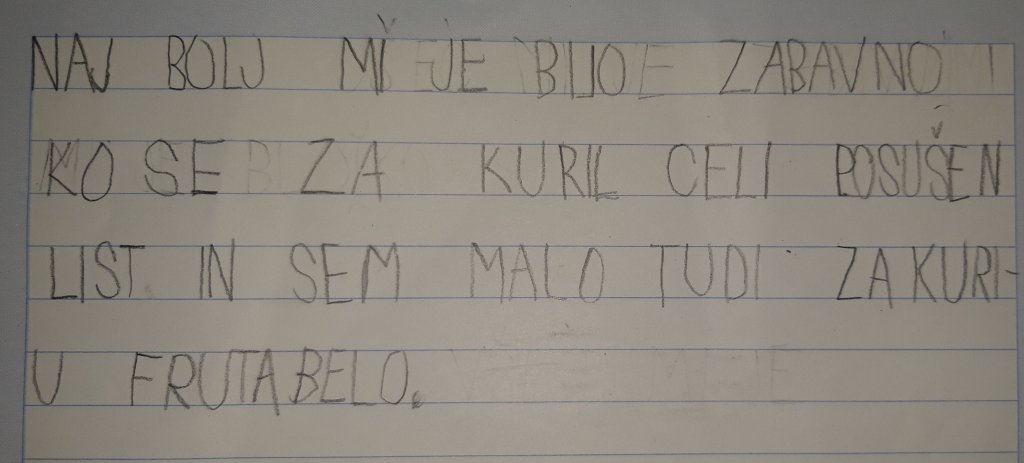 NAJ BOLJ MI JE BILO ZABAVNO
KO SE ZA KURIL CELI POSUŠEN
LIST IN SEM MALO TUDI ZAKURI-
U FRUTABELO.